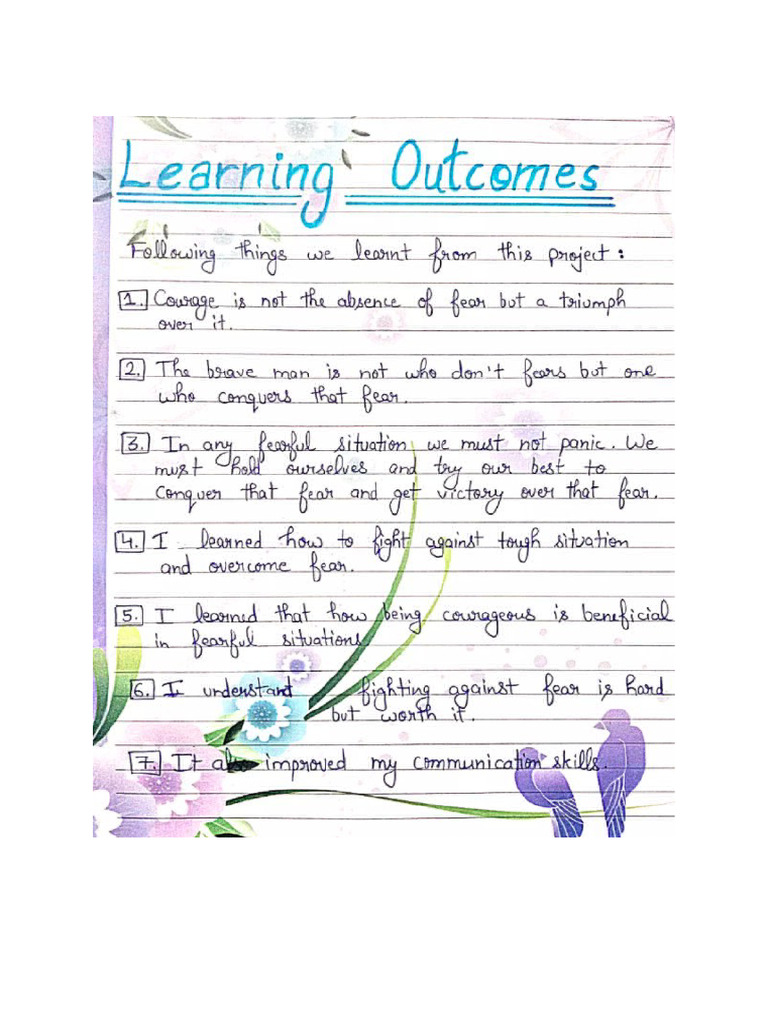 Learning Outcomes
Following things we learnt from this project :
1. Courage is not the absence of fear but a triumph
over it.
2. The brave man is not who don't fears but one
who conquers that fear.
3. In any fearful situation we must not panic. We
must hold ourselves and try our best to
conquer that fear and get victory over that fear.
4. I learned how to fight against tough situation
and overcome fear.
5. I learned that how being courageous is beneficial
in fearful situations
6. I understant fighting against fear is hard
but worth it.
7. It also improved my communication skills.